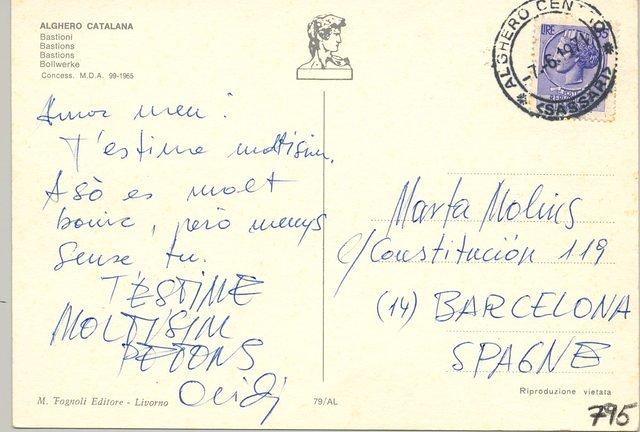 ALGHERO CATALANA
Bastioni
Bastions
Bastions
Bollwerke
Concess. M.D.A. 99-1965
ALGHERO CENTRO
-7.-6.1971
* (SASSARI) *
LIRE
Amor meu:
T'estime moltisim.
Asò es molt
bonic, però menys
sense tu.
T'ESTIME
MOLTISIM
PETONS
Ovidi
Marta Molins
c/ Constitución 119
(14) BARCELONA
SPAGNE
M. Fognoli Editore - Livorno
79/AL
Riproduzione vietata
795